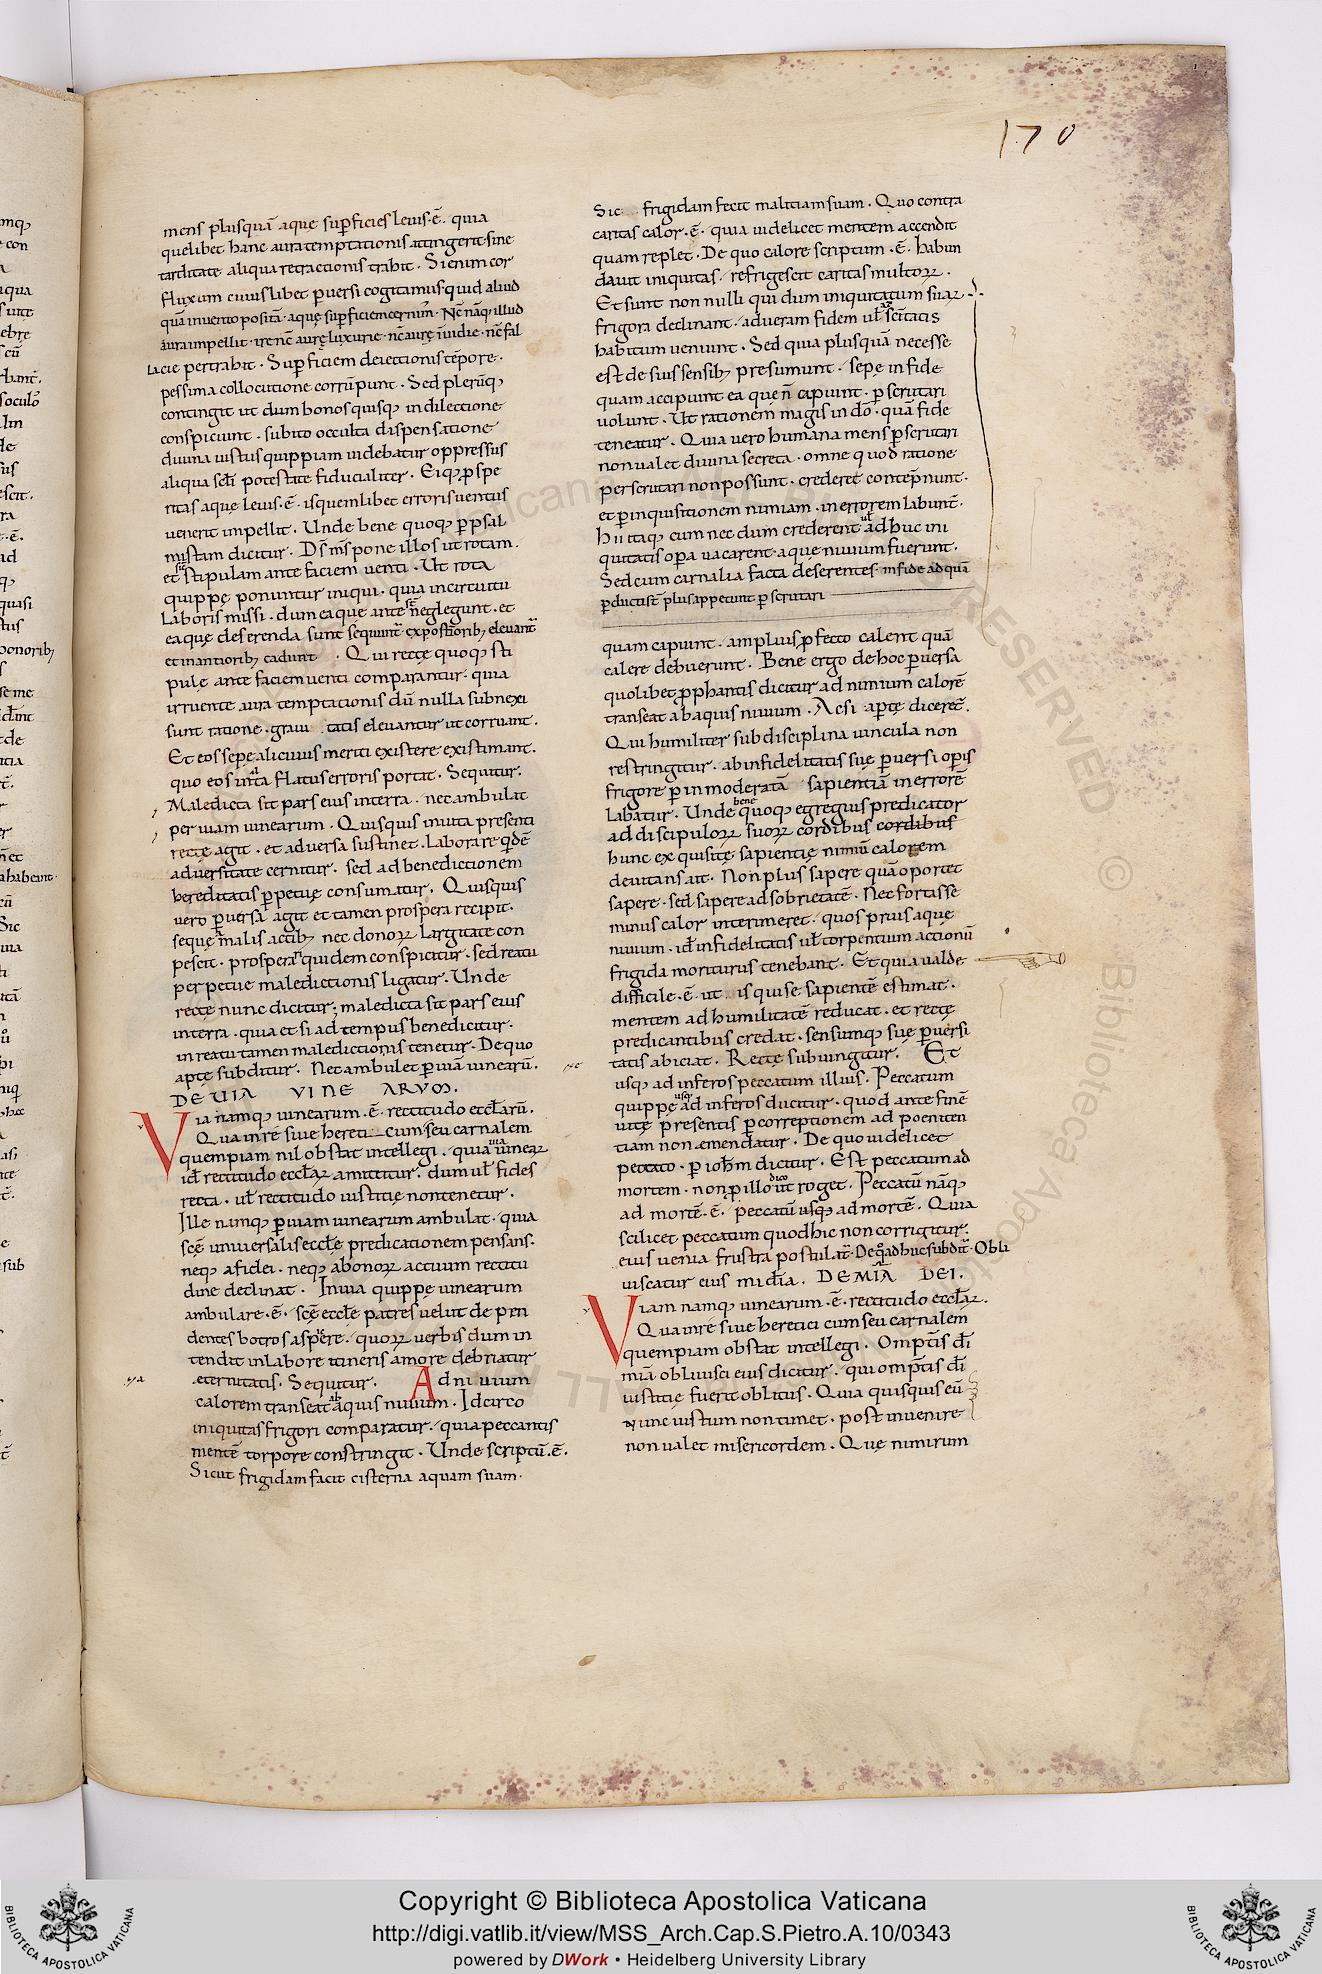 170
mens plusquā aquę sup̄ficies leuis.ē. quia
quelibet hanc aura temptationis attingerit sine
tarditate aliqua retractionis trahit. Si enim cor
fluxum cuiuslibet puersi cogitamus quid aliud
quā in uento positā. aquę sup̄ficiem cernim̄. Nc̄ nāq illud
aura impellit. ire nc̄ aurę luxurie. nc̄ aurę inuidie. nc̄ fal
lacie pertrahit. Sup̄ficiem deiectionis tēpore.
pessima collocutione corrūpunt. Sed plerūq;
contingit ut dum bonos quisq; in dilectione
conspiciunt. subito occulta dispensatione
diuina iustus quippiam uidebatur oppressus
aliqua scł̄i potestate fiducialiter. Eiq; p̄spe
ritas aque leuis.ē. is quem libet erroris uentus
uenerit impellit. Unde bene quoq; p̄ psal
mistam dicitur. D̄s m̄s pone illos ut rotam.
et stipulam ante faciem uenti. Ut rota
quippę ponuntur iniqui. quia in circuitu
Laboris missi. dum ea que ante neglegunt. et
ea quę deferenda sunt sequunt̄ ex posterioribus eleuant̄
et in anterioribus cadunt. Qui recte quoq; sti
pulę ante faciem uenti comparantur. quia
irruente aura temptationis dū nulla subnexi
sunt ratione. graui tatis eleuantur ut corruant.
Et eos sepe alicuius meriti existere existimant.
quo eos in alta flatus erroris portat. Sequitur.
Maledicta sit pars eius in terra. nec ambulat
per uiam uinearum. Quisquis in uita presenti
recte agit. et aduersa sustinet. Laborare q̄dē
aduersitate cernitur. sed ad benedictionem
hereditatis p̄petuę consumatur. Quisquis
uero p̄uersa agit et tamen prospera recipit.
seque a malis actib; nec donoꝝ largitate con
pescit. prosperari quidem conspicitur. sed reatu
perpetue maledictionis ligatur. Unde
recte nunc dicitur; maledicta sit pars eius
in terra. quia et si ad tempus benedicitur.
in reatu tamen maledictionis tenetur. De quo
apte subditur. Nec ambulet p̄ uiā uinearū.
DE UIA VINE ARVM.
Via namq; uinearum.ē. rectitudo eccłarū.
Qua in re siue hereti cum seu carnalem
quempiam nil obstat intellegi. quia uia uineaꝝ
id̄ rectitudo eccłaꝝ amittitur. dum uł fides
recta. uł rectitudo iustitię non tenetur.
Ille namq; p̄ uiam uinearum ambulat. quia
scē uniuersalis eccłę predicationem pensans.
neq; a fidei. neq; a bonoꝝ actuum rectitu
dine declinat. In uia quippę uinearum
ambulare.ē. scē eccłę patres uelut de pen
dentes botros aspicere. quoꝝ uerbis dum in
tendit in labore itineris amore debriatur
.eternitatis. Sequitur. Ad niuium
calorem transeat ab aquis niuium. Idcirco
iniquitas frigori comparatur. quia peccantis
mentē torpore constringit. Unde scriptū.ē.
Sicut frigidam facit cisterna aquam suam.
Sic frigidam fecit malitiam suam. Quo contra
caritas calor.ē. quia uidelicet mentem accendit
quam replet. De quo calore scriptum.ē. habun
dauit iniquitas. refrigescit caritas multoꝝ.
Et sunt non nulli qui dum iniquitatum suaꝝ
frigora declinant. ad ueram fidem uł scītatis
habitum ueniunt. Sed quia plusquā necesse
est de suis sensib; presumunt. sepe in fide
quam accipiunt ea que n̄ capiunt. p̄scrutari
uolunt. Ut rationem magis in dō. quā fide
teneatur. Quia uero humana mens p̄scrutari
non ualet diuina secreta. omne quod ratione
perscrutari non possunt. credere contēpnunt.
et p̄ inquisitionem nimiam. in errorem labunt̄.
hii itaq; cum nec dum crederent uł adhuc ini
quitatis op̄a uacarent. aque niuium fuerunt.
Sed cum carnalia facta deserentes in fide ad quā
p̄ducti st̄ plus appetunt p̄scrutari
quam capiunt. amplius p̄fecto calent quā
calere debuerunt. Bene ergo de hoc p̄uersa
quolibet p̄phantis dicitur ad nimium calorē
transeat ab aquis niuium. Ac si ap̄te diceret̄.
Qui humiliter sub disciplina uincula non
restringitur. ab infidelitatis suę p̄uersi op̄is
frigore p̄ in moderatā sapientiā in errorē
labatur. Unde bene quoq; egregius predicator
ad discipuloꝝ suoꝝ cordibus cordibus
hunc exquisitę sapientię nimiū calorem
deuitans ait. Non plus sapere quā oportet
sapere. sed sapere ad sobrietatē. Ne fortasse
minus calor interimeret. quos prius aquę
niuium. id̄ infidelitatis uł torpentium actionū
frigida morituros tenebant. Et quia ualde
difficile.ē. ut is qui se sapientē estimat.
mentem ad humilitatē reducat. et recte
predicantibus credat. sensumq; suę p̄uersi
tatis abiciat. Recte subiungitur. Et
usq; ad inferos peccatum illius. Peccatum
quippę usq; ad inferos ducitur. quod ante finē
uitę presentis p̄ correptionem ad poeniten
tiam non emendatur. De quo uidelicet
peccato. p̄ ioh̄m dicitur. Est peccatum ad
mortem. non p̄ illo dico ut roget. Peccatū nāq;
ad mortē.ē. peccatū usq; ad mortē. Quia
scilicet peccatum quod hic non corrigitur.
eius uenia frustra postulat̄. De q̄ adhuc subdit̄. Obli
uiscatur eius mīdia. DE MIA DEI.
Viam namq; uinearum.ē. rectitudo eccłaꝝ.
Qua in re siue heretici cum seu carnalem
quempiam obstat intellegi. Omptīs d̄i
mīa obliuisci eius dicitur. qui omptīs d̄i
iustitię fuerit oblitus. Quia quisquis eū
nunc iustum non timet. post inuenire
non ualet misericordem. Quę nimirum
Copyright © Biblioteca Apostolica Vaticana
http://digi.vatlib.it/view/MSS_Arch.Cap.S.Pietro.A.10/0343
powered by DWork • Heidelberg University Library